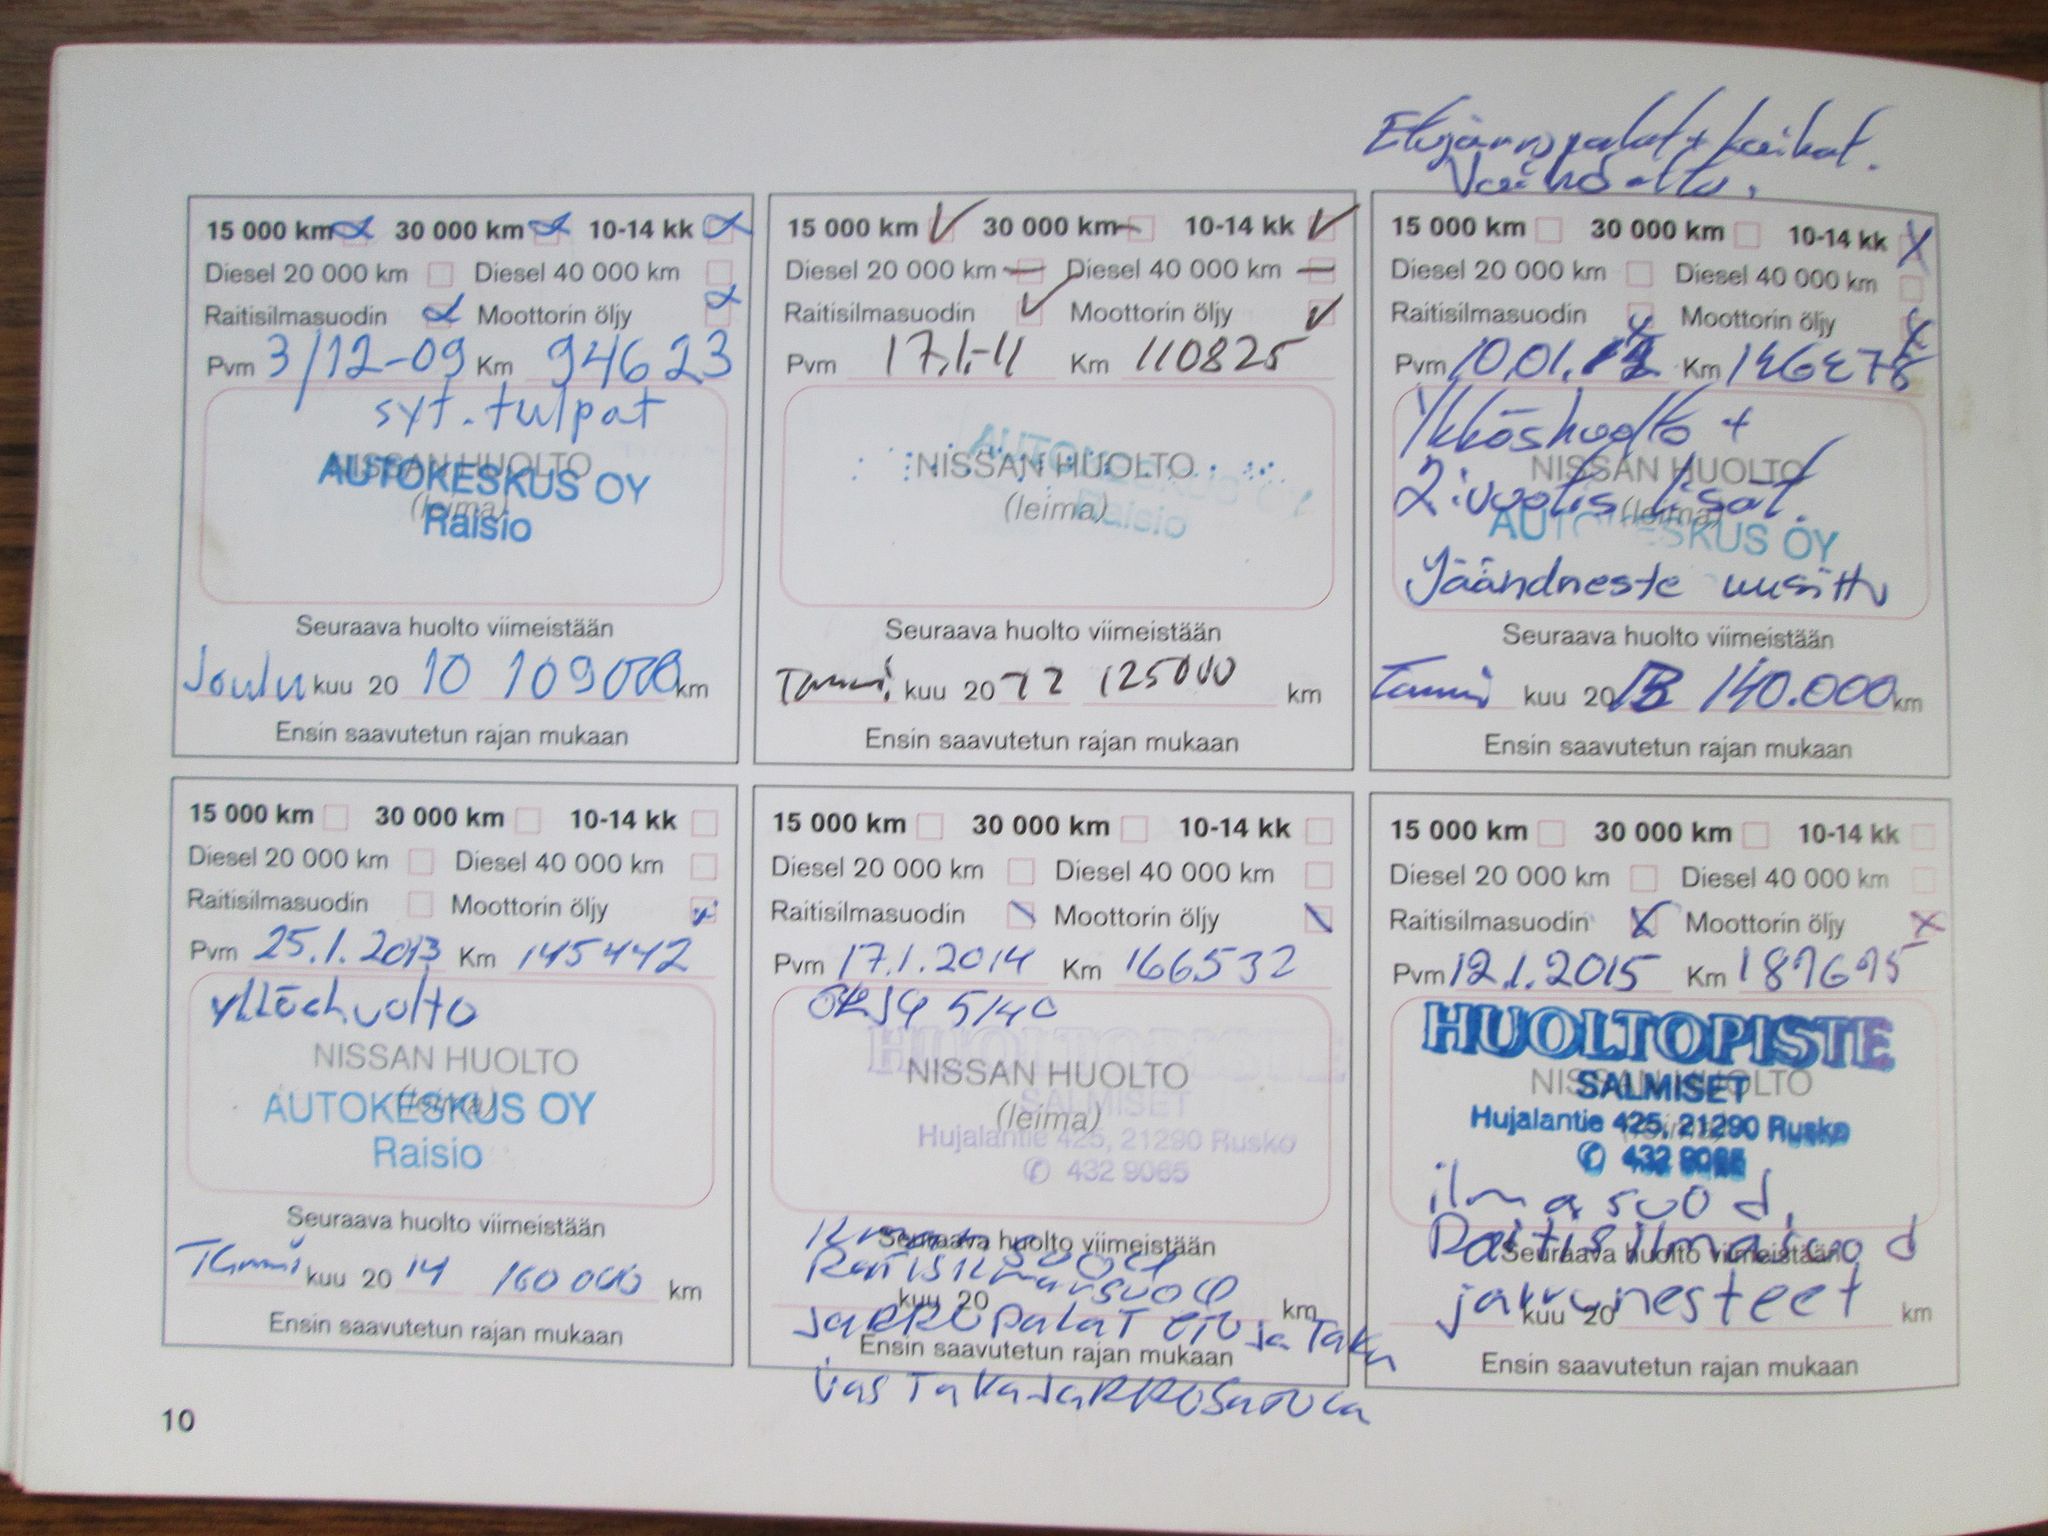 Etujarrupalat + laikat.
Vaihdettu.
15 000 km 30 000 km 10-14 kk
Diesel 20 000 km Diesel 40 000 km
Raitisilmasuodin Moottorin öljy
Pvm 3/12-09 Km 94623
syt. tulpat
NISSAN HUOLTO
(leima)
AUTOKESKUS OY
Raisio
Seuraava huolto viimeistään
Joulu kuu 20 10 109000 km
Ensin saavutetun rajan mukaan
15 000 km 30 000 km 10-14 kk
Diesel 20 000 km Diesel 40 000 km
Raitisilmasuodin Moottorin öljy
Pvm 17.1.-11 Km 110825
NISSAN HUOLTO
(leima)
AUTOKESKUS OY
Raisio
Seuraava huolto viimeistään
Tammi kuu 20 12 125000 km
Ensin saavutetun rajan mukaan
15 000 km 30 000 km 10-14 kk
Diesel 20 000 km Diesel 40 000 km
Raitisilmasuodin Moottorin öljy
Pvm 10.01.12 Km
Ykköshuolto +
NISSAN HUOLTO
2:vuotis lisät.
(leima)
AUTOKESKUS OY
Jäähdneste uusittu
Seuraava huolto viimeistään
Tammi kuu 20 13 140.000 km
Ensin saavutetun rajan mukaan
15 000 km 30 000 km 10-14 kk
Diesel 20 000 km Diesel 40 000 km
Raitisilmasuodin Moottorin öljy
Pvm 25.1.2013 Km 145442
ykköshuolto
NISSAN HUOLTO
(leima)
AUTOKESKUS OY
Raisio
Seuraava huolto viimeistään
Tammi kuu 20 14 160 000 km
Ensin saavutetun rajan mukaan
15 000 km 30 000 km 10-14 kk
Diesel 20 000 km Diesel 40 000 km
Raitisilmasuodin Moottorin öljy
Pvm 17.1.2014 Km 166532
5/40
HUOLTOPISTE
NISSAN HUOLTO
SALMISET
(leima)
Hujalantie 425, 21290 Rusko
✆ 432 9065
Seuraava huolto viimeistään
Raitisilmansuod
kuu 20 km
Jarrupalat etu ja Taka
Ensin saavutetun rajan mukaan
Vas Takajarrusatula
15 000 km 30 000 km 10-14 kk
Diesel 20 000 km Diesel 40 000 km
Raitisilmasuodin Moottorin öljy
Pvm 12.1.2015 Km
HUOLTOPISTE
NISSAN HUOLTO
SALMISET
(leima)
Hujalantie 425, 21290 Rusko
✆ 432 9065
ilmasuod.
Raitisilmasuod
Seuraava huolto viimeistään
jarrunesteet
kuu 20 km
Ensin saavutetun rajan mukaan
10